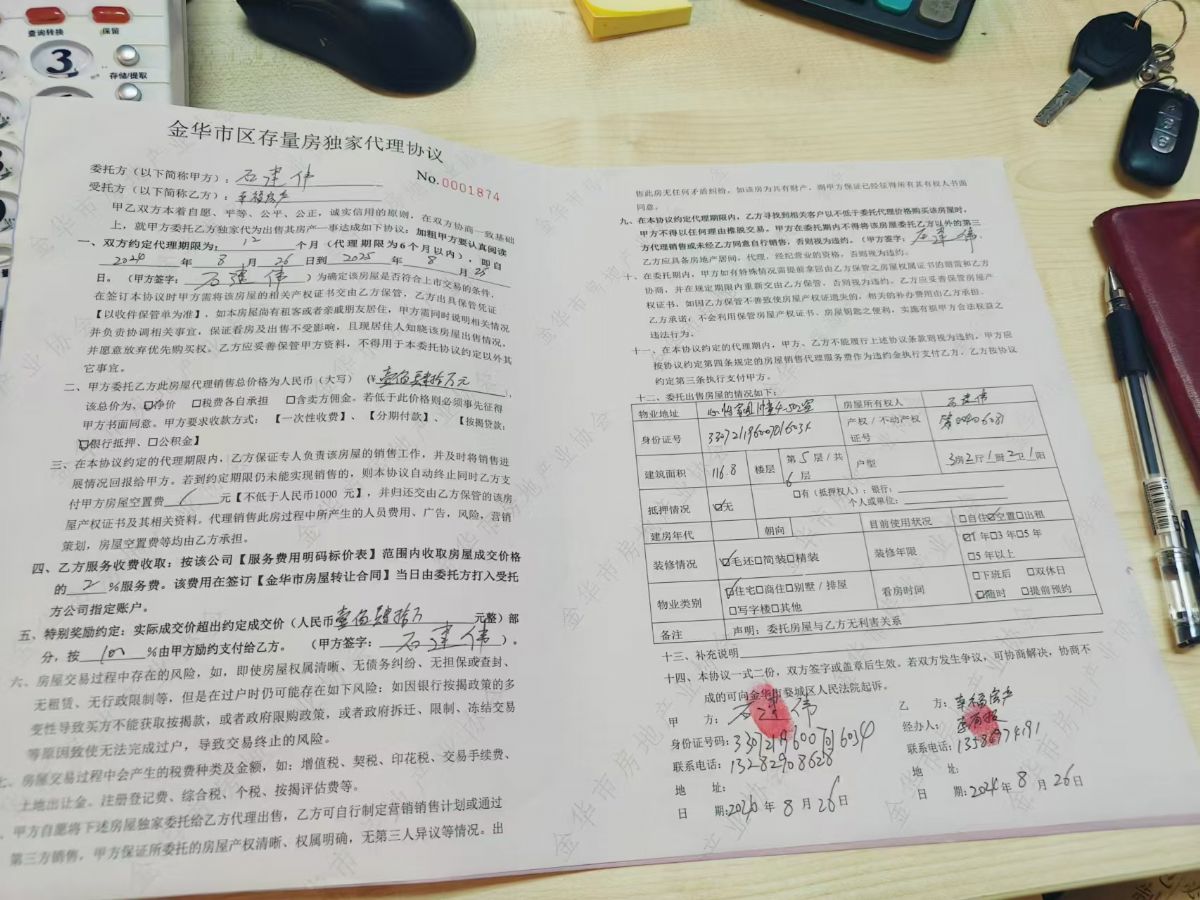 查询转换
保留
3
存储/提取
金华市区存量房独家代理协议
No.0001874
委托方（以下简称甲方）：石建伟
受托方（以下简称乙方）：幸福房产
甲乙双方本着自愿、平等、公平、公正，诚实信用的原则，在双方协商一致基础
上，就甲方委托乙方独家代为出售其房产一事达成如下协议：加粗甲方要认真阅读
一、双方约定代理期限为：12个月（代理期限为6个月以内），即自
2024年8月26日到2025年8月25
日。（甲方签字：石建伟）为确定该房屋是否符合上市交易的条件，
在签订本协议时甲方需将该房屋的相关产权证书交由乙方保管，乙方出具保管凭证
【以收件保管单为准】，如本房屋尚有租客或者亲戚朋友居住，甲方需同时说明相关情况
并负责协调相关事宜，保证看房及出售不受影响，且现居住人知晓该房屋出售情况，
并愿意放弃优先购买权。乙方应妥善保管甲方资料，不得用于本委托协议约定以外其
它事宜。
二、甲方委托乙方此房屋代理销售总价格为人民币（大写）（¥壹佰肆拾万元），
该总价为、☑净价 □税费各自承担 □含卖方佣金。若低于此价格则必须事先征得
甲方书面同意。甲方要求收款方式：【一次性收费】、【分期付款】、【按揭贷款:
☑银行抵押、□公积金】
三、在本协议约定的代理期限内，乙方保证专人负责该房屋的销售工作，并及时将销售进
展情况回报给甲方。若到约定期限仍未能实现销售的，则本协议自动终止同时乙方支
付甲方房屋空置费 元【不低于人民币1000 元】，并归还交由乙方保管的该房
屋产权证书及其相关资料。代理销售此房过程中所产生的人员费用、广告，风险，营销
策划，房屋空置费等均由乙方承担。
四、乙方服务收费收取：按该公司【服务费用明码标价表】范围内收取房屋成交价格
的2%服务费。该费用在签订【金华市房屋转让合同】当日由委托方打入受托
方公司指定账户。
五、特别奖励约定：实际成交价超出约定成交价（人民币壹佰肆拾万元整）部
分，按100%由甲方励约支付给乙方。（甲方签字：石建伟）。
六、房屋交易过程中存在的风险，如，即使房屋权属清晰、无债务纠纷、无担保或查封、
无租赁、无行政限制等，但是在过户时仍可能存在如下风险：如因银行按揭政策的多
变性导致买方不能获取按揭款，或者政府限购政策，或者政府拆迁、限制、冻结交易
等原因致使无法完成过户，导致交易终止的风险。
七、房屋交易过程中会产生的税费种类及金额，如：增值税、契税、印花税、交易手续费、
土地出让金。注册登记费、综合税、个税、按揭评估费等。
甲方自愿将下述房屋独家委托给乙方代理出售，乙方可自行制定营销销售计划或通过
第三方销售，甲方保证所委托的房屋产权清晰、权属明确，无第三人异议等情况。出
售此房无任何矛盾纠纷，如该房为共有财产，则甲方保证已经征得所有其有权人书面
同意。
九、在本协议约定代理期限内，乙方寻找到相关客户以不低于委托代理价格购买该房屋时，
甲方不得以任何理由推脱交易。甲方在委托期内不得将该房屋委托乙方以外的第三
方代理销售或未经乙方同意自行销售，否则视为违约。（甲方签字：石建伟
乙方应具备房地产居间，代理、经纪营业的资格，否则视为违约。
十、在委托期内，甲方如有特殊情况需提前拿回由乙方保管之房屋权属证书的期需和乙方
协商，并在规定期限内重新交由乙方保管，否则视为违约。乙方应妥善保管房屋产
权证书，如因乙方保管不善致使房屋产权证遗失的，相关的补办费用由乙方承担。
乙方承诺：不会利用保管房屋产权证书、房屋钥匙之便利，实施有损甲方合法权益之
违法行为。
十一、在本协议约定的代理期内，甲方、乙方不能履行上述协议条款则视为违约，甲方应
按协议约定第四条规定的房屋销售代理服务费作为违约金执行支付乙方，乙方按协议
约定第三条执行支付甲方。
十二、委托出售房屋的情况如下：
物业地址 房屋所有权人 石建伟
身份证号 33072119600701603X 产权／不动产权证号
建筑面积 116.8 楼层 第5层/共6层 户型 3房2厅1厨2卫1阳
抵押情况 ☑无 □有（抵押权人）：银行： 个人或单位：
建房年代 朝向 目前使用状况 □自住☑空置□出租
装修情况 ☑毛还□简装□精装 装修年限 ☑1年□3年□5年 □5年以上
物业类别 ☑住宅□商住□别墅／排屋 □写字楼□其他 看房时间 □下班后 □双休日 ☑随时 □提前预约
备注 声明：委托房屋与乙方无利害关系
十三、补充说明
十四、本协议一式二份，双方签字或盖章后生效。若双方发生争议，可协商解决，协商不
成的可向金华市婺城区人民法院起诉。
甲 方：石建伟
身份证号码：
联系电话：13282908628
地 址：
日 期：2024年8月26日
乙 方：幸福房产
经办人：
联系电话：
地 址：
日 期：2024年8月26日